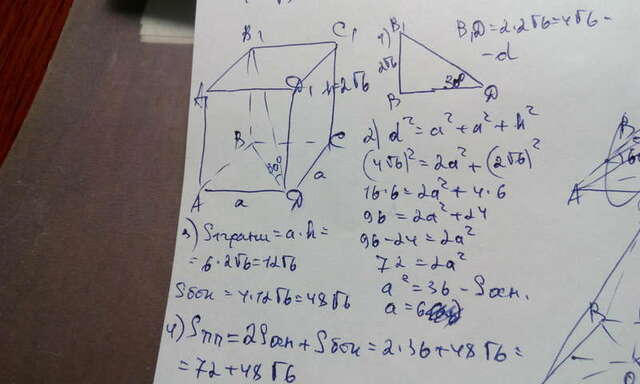 B₁
C₁
A
D₁
h=2√6
B
C
30°
A
a
D
a
1) B₁
2√6
B
30°
D
B₁D=2·2√6=4√6-
-d
2) d²=a²+a²+h²
(4√6)²=2a²+(2√6)²
16·6=2a²+4·6
96=2a²+24
96-24=2a²
72=2a²
a²=36-Sосн.
a=6
3) S₁грани=a·h=
=6·2√6=12√6
Sбок=4·12√6=48√6
4) Sпп=2Sосн+Sбок=2·36+48√6=
=72+48√6
B
A
60
B